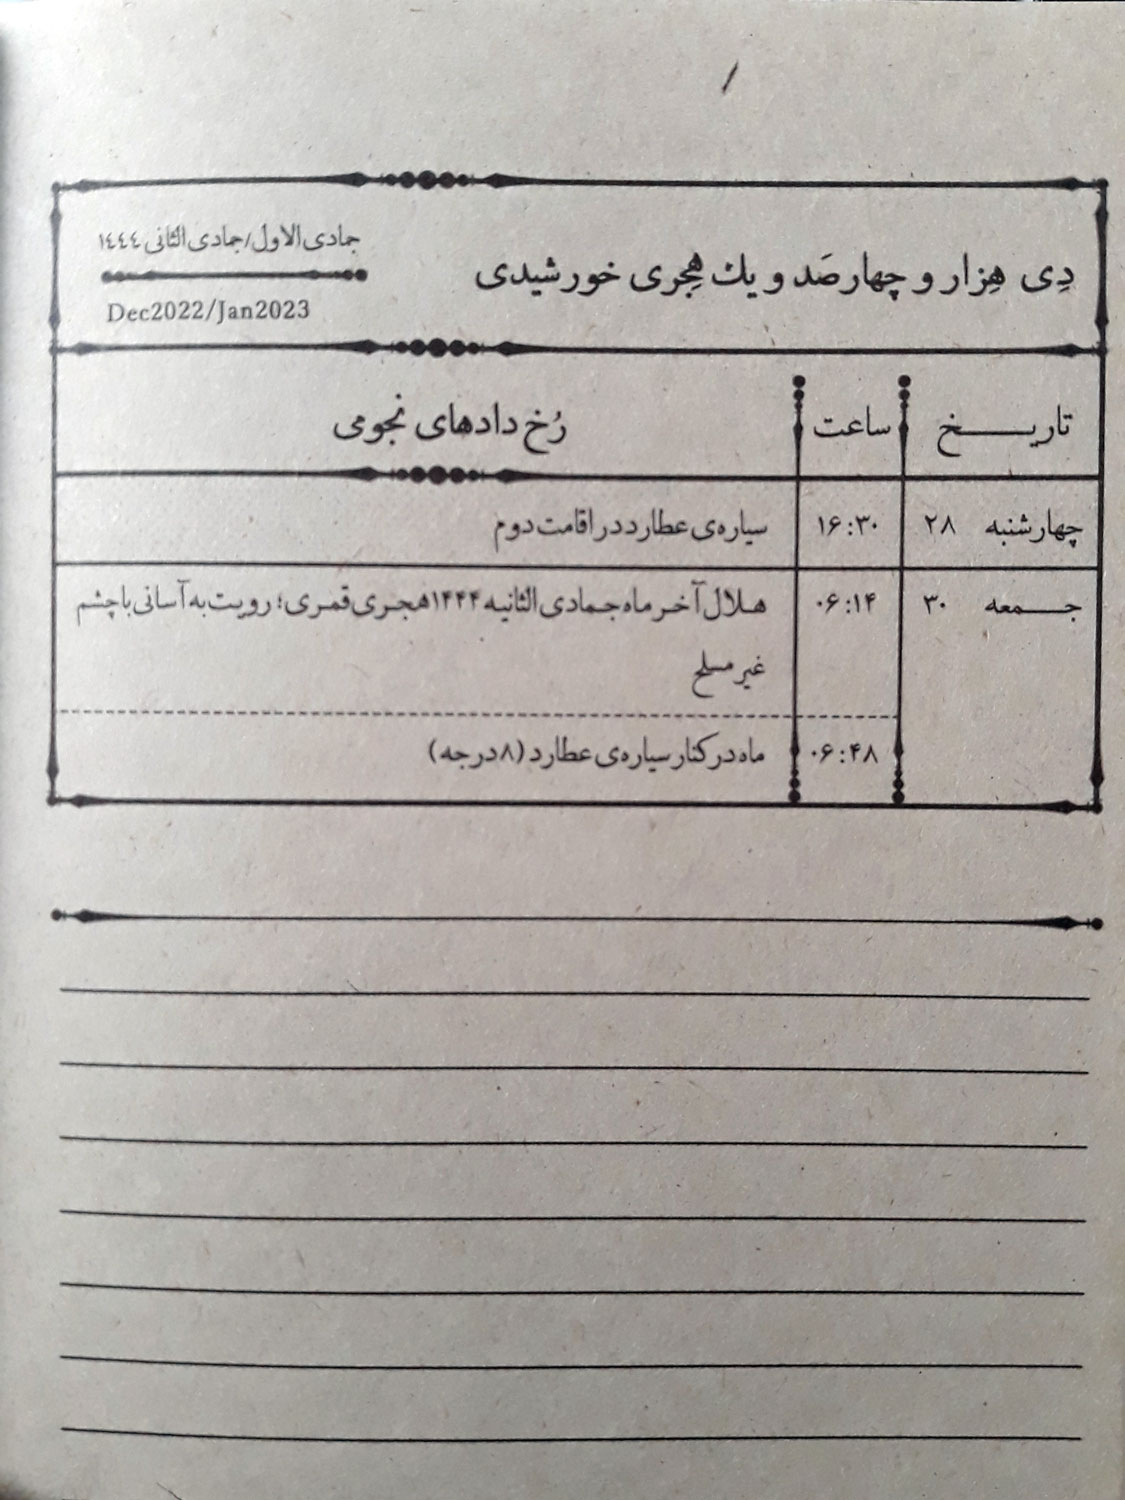 دِی هِزار و چهارصَد و یك هِجری خورشیدی
جمادی الاول/جمادی الثانی ١٤٤٤
Dec2022/Jan2023
تاریـــخ ساعت رُخ دادهای نجومی
چهارشنبه ۲۸ ۱۶:۳۰ سیاره‌ی عطارد در اقامت دوم
جـــمعه ۳۰ ۰۶:۱۴ هلال آخر ماه جمادی الثانیه ۱۴۴۴ هجری قمری؛ رویت به آسانی با چشم
غیر مسلح
۰۶:۴۸ ماه در کنار سیاره‌ی عطارد (۸ درجه)